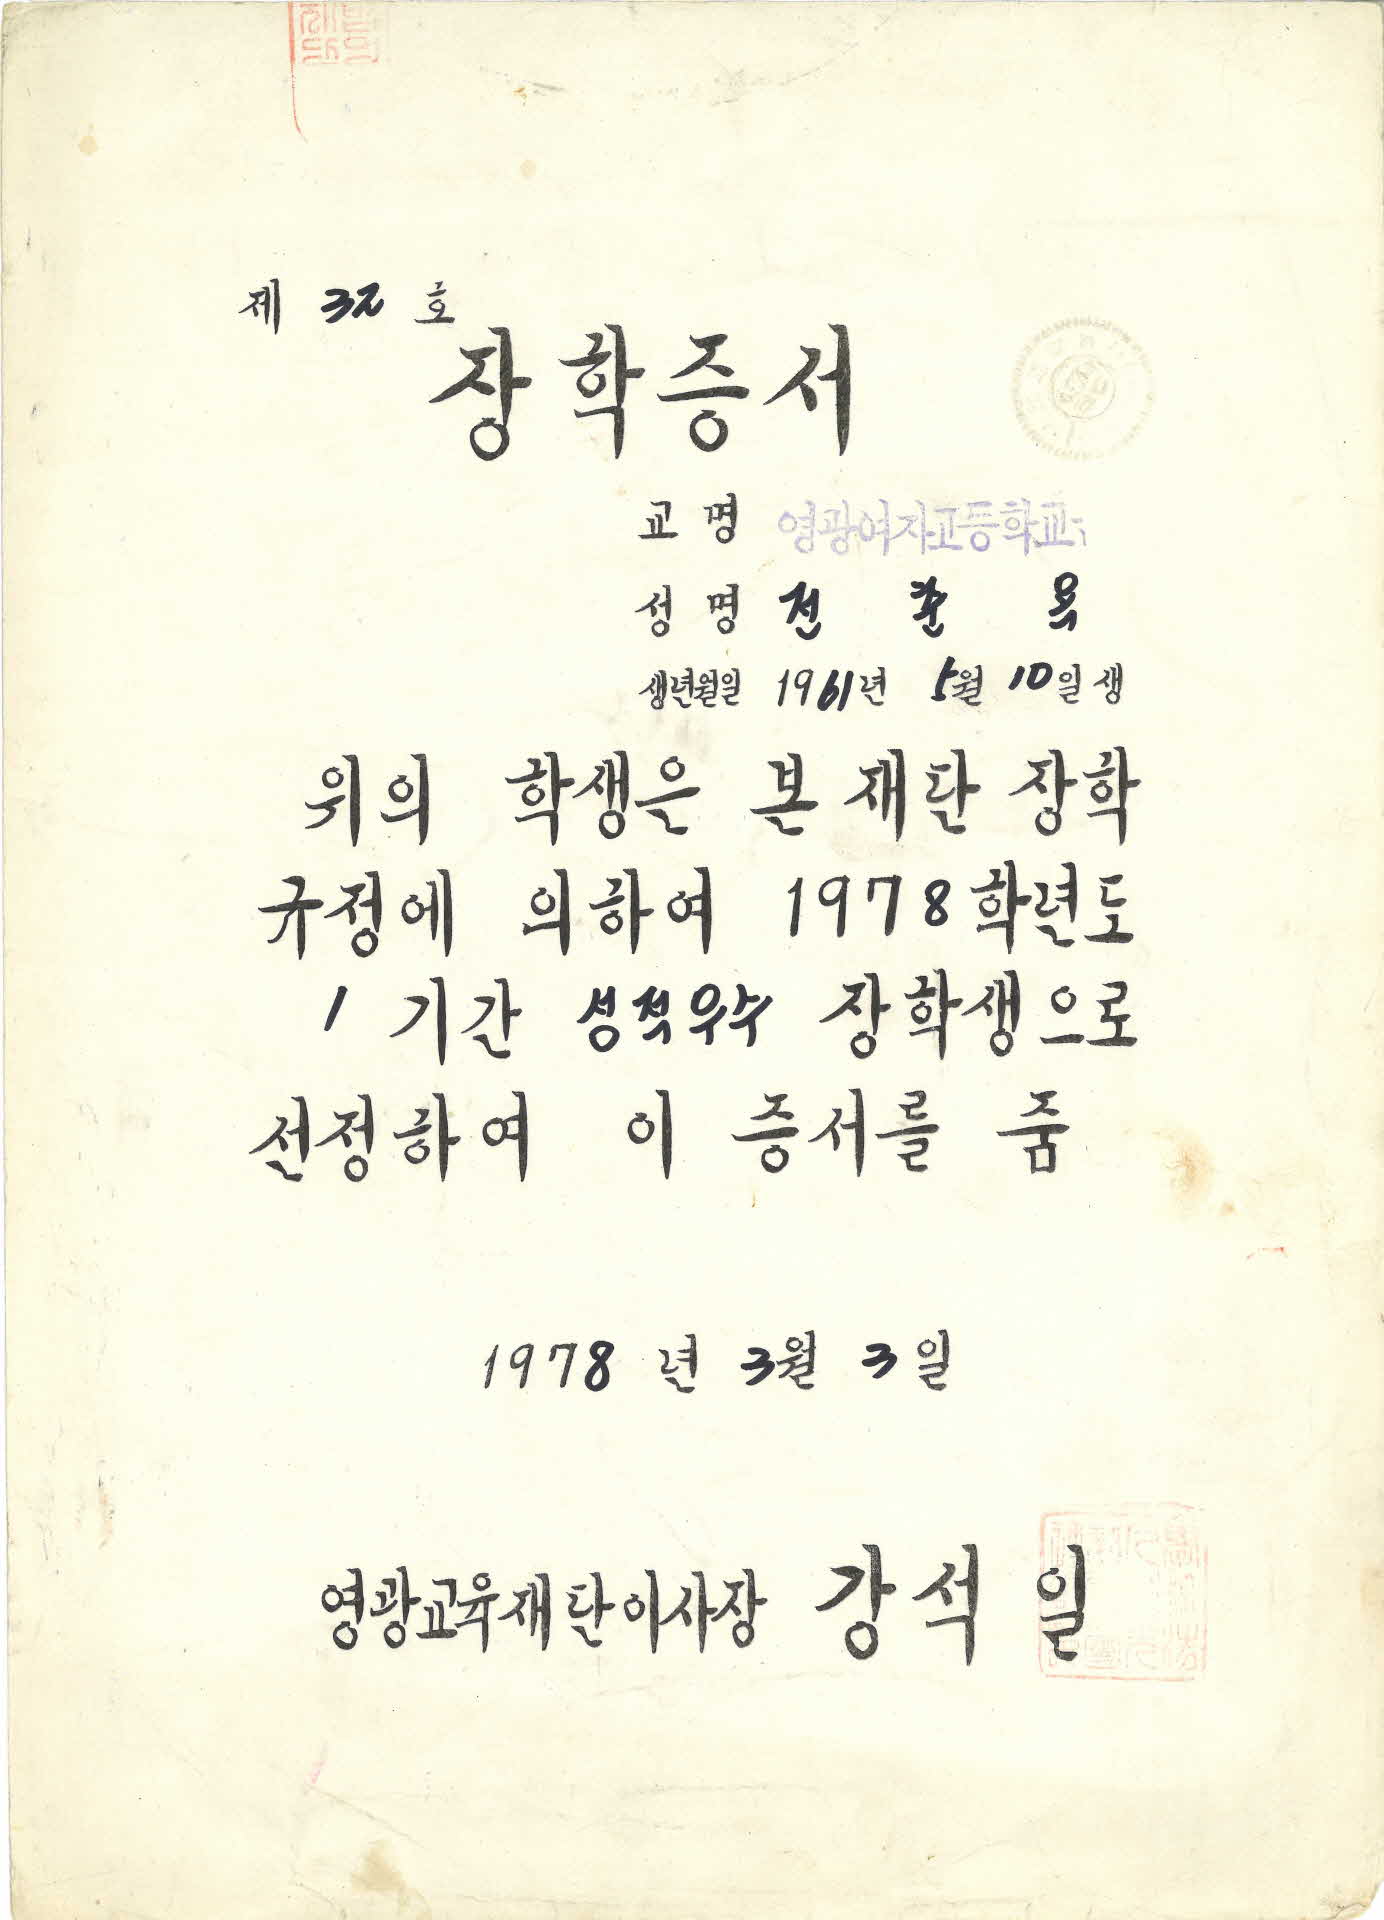 제 32 호
장학증서
교명 영광여자고등학교
성명 전 준 옥
생년월일 1961년 5월 10일생
위의 학생은 본 재단 장학
규정에 의하여 1978학년도
1 기간 성적우수 장학생으로
선정하여 이 증서를 줌
1978 년 3월 3일
영광교육재단이사장 강석일